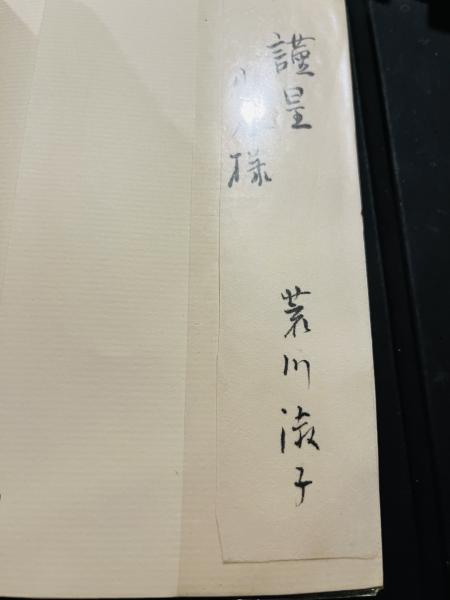 謹呈
様
荒川淑子